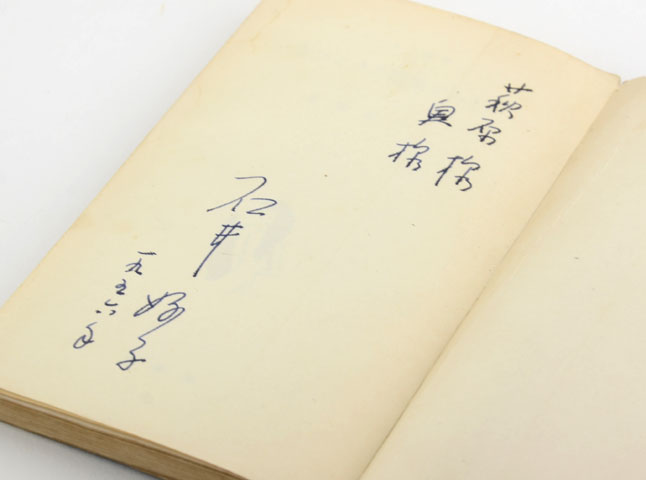 萩原様
奥様
石井好子
一九五六年